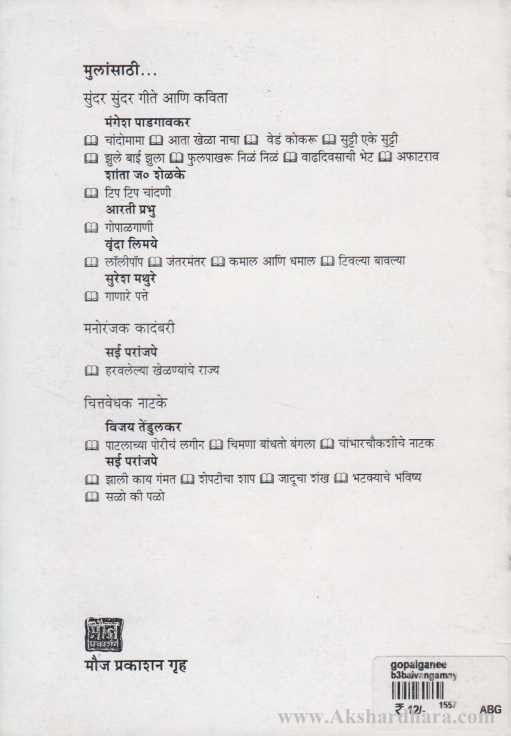 मुलांसाठी...
सुंदर सुंदर गीते आणि कविता
मंगेश पाडगावकर
चांदोमामा आता खेळा नाचा वेडं कोकरू सुट्टी एके सुट्टी
झुले बाई झुला फुलपाखरू निळं निळं वाढदिवसाची भेट अफाटराव
शांता ज० शेळके
टिप टिप चांदणी
आरती प्रभु
गोपाळगाणी
वृंदा लिमये
लॉलीपॉप जंतरमंतर कमाल आणि धमाल टिवल्या बावल्या
सुरेश मथुरे
गाणारे पत्ते
मनोरंजक कादंबरी
सई परांजपे
हरवलेल्या खेळण्यांचे राज्य
चित्तवेधक नाटके
विजय तेंडुलकर
पाटलाच्या पोरीचं लगीन चिमणा बांधतो बंगला चांभारचौकशीचे नाटक
सई परांजपे
झाली काय गंमत शेपटीचा शाप जादूचा शंख भटक्याचे भविष्य
सळो की पळो
मौज
प्रकाशन
मौज प्रकाशन गृह
gopalganee
b3baivangamay
₹ 12/- 1557 ABG
www.Akshardhara.com